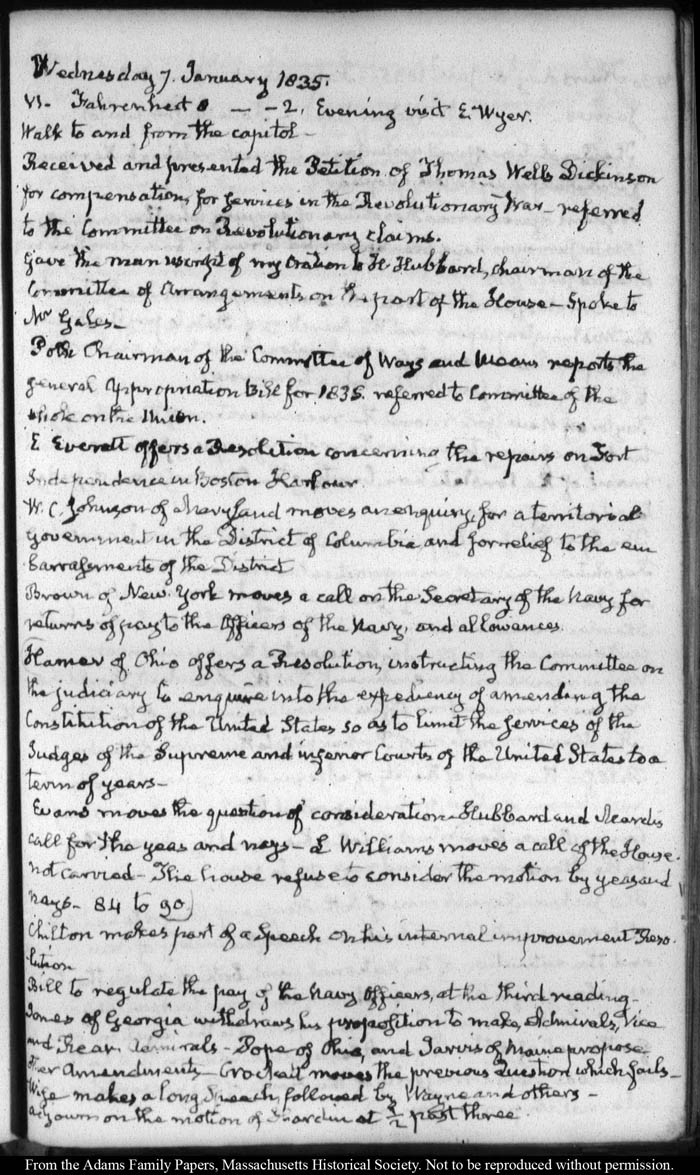 Wednesday 7. January 1835.
VI. Fahrenheit 8 — – 2. Evening visit E. Wyer.
Walk to and from the capitol –
Received and presented the Petition of Thomas Wells Dickinson
for compensation, for services in the Revolutionary War – referred
to the Committee on Revolutionary claims.
Gave the manuscript of my Oration to H. Hubbard, chairman of the
Committee of Arrangements on the part of the House – Spoke to
Mr Gales –
Polk Chairman of the Committee of Ways and Means reports the
general Appropriation Bill for 1835. referred to Committee of the
whole on the Union.
E Everett offers a Resolution concerning the repairs on Fort
Independence in Boston Harbour.
W. C. Johnson of Maryland moves an enquiry, for a territorial
government in the District of Columbia and for relief to the em
barrassments of the District
Brown of New York moves a call on the Secretary of the Navy for
returns of pay to the Officers of the Navy, and allowances.
Hamer of Ohio offers a Resolution, instructing the Committee on
the judiciary to enquire into the expediency of amending the
Constitution of the United States so as to limit the services of the
Judges of the Supreme and inferior Courts of the United States to a
term of years –
Evans moves the question of consideration – Hubbard and
call for the yeas and nays – L Williams moves a call of the House.
not carried – The house refuse to consider the motion by yeas and
nays – 84 to 90
Chilton makes part of a Speech on his internal improvement Reso.
lution
Bill to regulate the pay of the Navy Officers, at the third reading –
Jones of Georgia withdraws his proposition to make, Admirals, Vice
and Rear Admirals – Pope of and Jarvis of Maine propose
other Amendments – Crockett moves the previous Question which fails –
Wise makes a long Speech, followed by Wayne and others –
adjourn on the motion of Hardin at ½ past three.
From the Adams Family Papers, Massachusetts Historical Society. Not to be reproduced without permission.